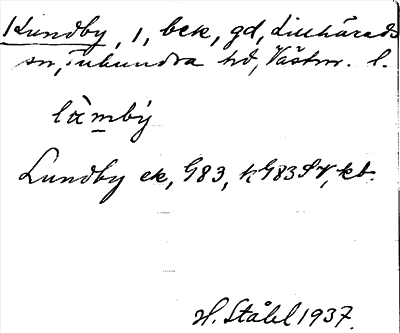 Lundby, 1, bek, gd, Lillhärads
sn, Tuhundra hd, Västm. l.
làmby
Lundby ek, G83, kG83SV, kb.
H. Ståhl 1937.